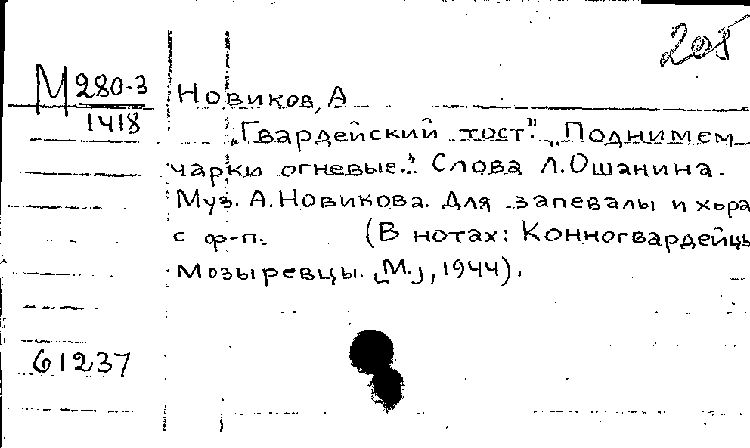 205
М 280-3
1418
Новиков, А
„Гвардейский тост". „Поднимем
чарки огневые..." Слова Л. Ошанина.
Муз. А. Новикова. Для запевалы и хора
с ф-п. (В нотах: Конногвардейцы
Мозыревцы. [М.], 1944).
61237